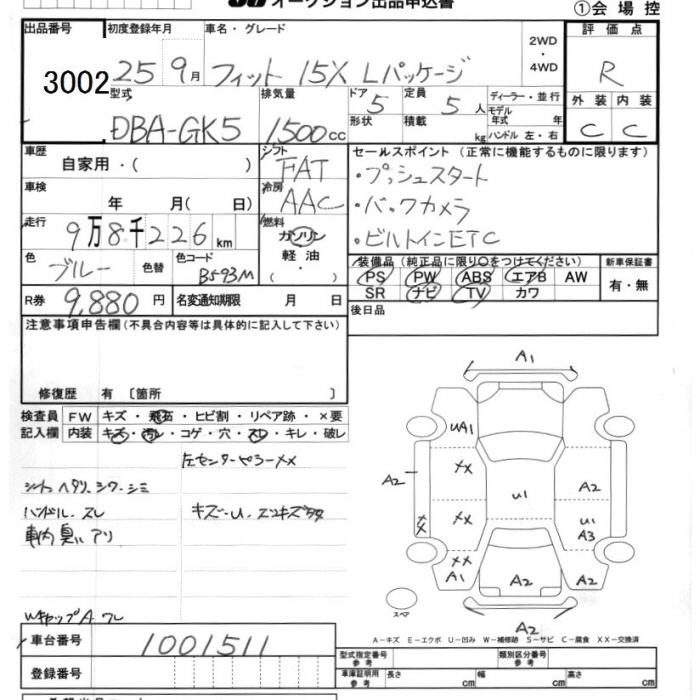 オークション出品申込書
①会場控
出品番号
3002
初度登録年月
25 9月
車名・グレード
フィット 15X Lパッケージ
2WD
・
4WD
評価点
R
型式
DBA-GK5
排気量
1500cc
ドア
5
形状
定員
5人
積載
kg
ディーラー・並行
モデル
年式 年
ハンドル 左・右
外装 内装
C C
車歴
自家用・( )
シフト
FAT
セールスポイント (正常に機能するものに限ります)
・プッシュスタート
・バックカメラ
・ビルトインETC
車検
年 月( 日)
冷房
AAC
走行
9万8千226km
燃料
ガソリン
軽油
・( )
色
ブルー
色替
色コード
B593M
装備品 (純正品に限り○をつけてください)
PS PW ABS エアB AW
SR ナビ TV カワ
新車保証書
有・無
R券
9,880円
名変通知期限 月 日
後日品
注意事項申告欄(不具合内容等は具体的に記入して下さい)
修復歴 有 〔箇所 〕
検査員
記入欄
FW キズ・飛石・ヒビ割・リペア跡・×要
内装 キズ・汚レ・コゲ・穴・スレ・キレ・破レ
左センターピラーXX
シート ヘタリ、シワ、シミ
ハンドル、スレ
キズ-U、
車内臭いアリ
WキャップA ワレ
A1
UA1
XX
A2
XX
U1
A2
XX
U1
A3
XX
A1
A2
A2
スペア
A2
A-キズ E-エクボ U-凹み W-補修跡 S-サビ C-腐食 XX-交換済
車台番号
1001511
登録番号
型式指定番号
参考
類別区分番号
参考
車庫証明用
参考
長さ cm
幅 cm
高さ cm